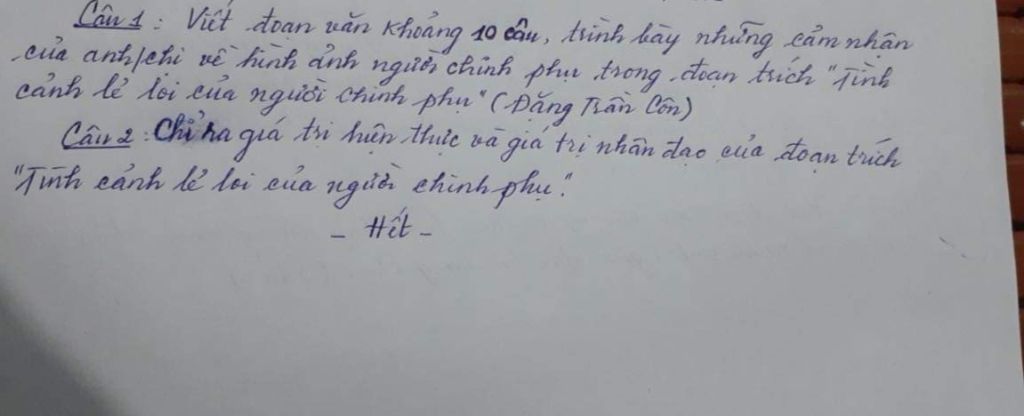 Câu 1: Viết đoạn văn khoảng 10 câu, trình bày những cảm nhận
của anh/chị về hình ảnh người chinh phụ trong đoạn trích "Tình
cảnh lẻ loi của người chinh phụ" (Đặng Trần Côn)
Câu 2: Chỉ ra giá trị hiện thực và giá trị nhân đạo của đoạn trích
"Tình cảnh lẻ loi của người chinh phụ".
- Hết -